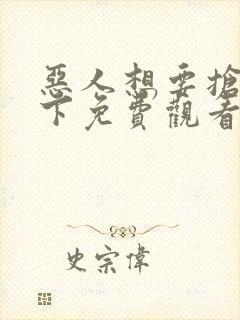 惡人想要搶
下免費觀看
史宗偉